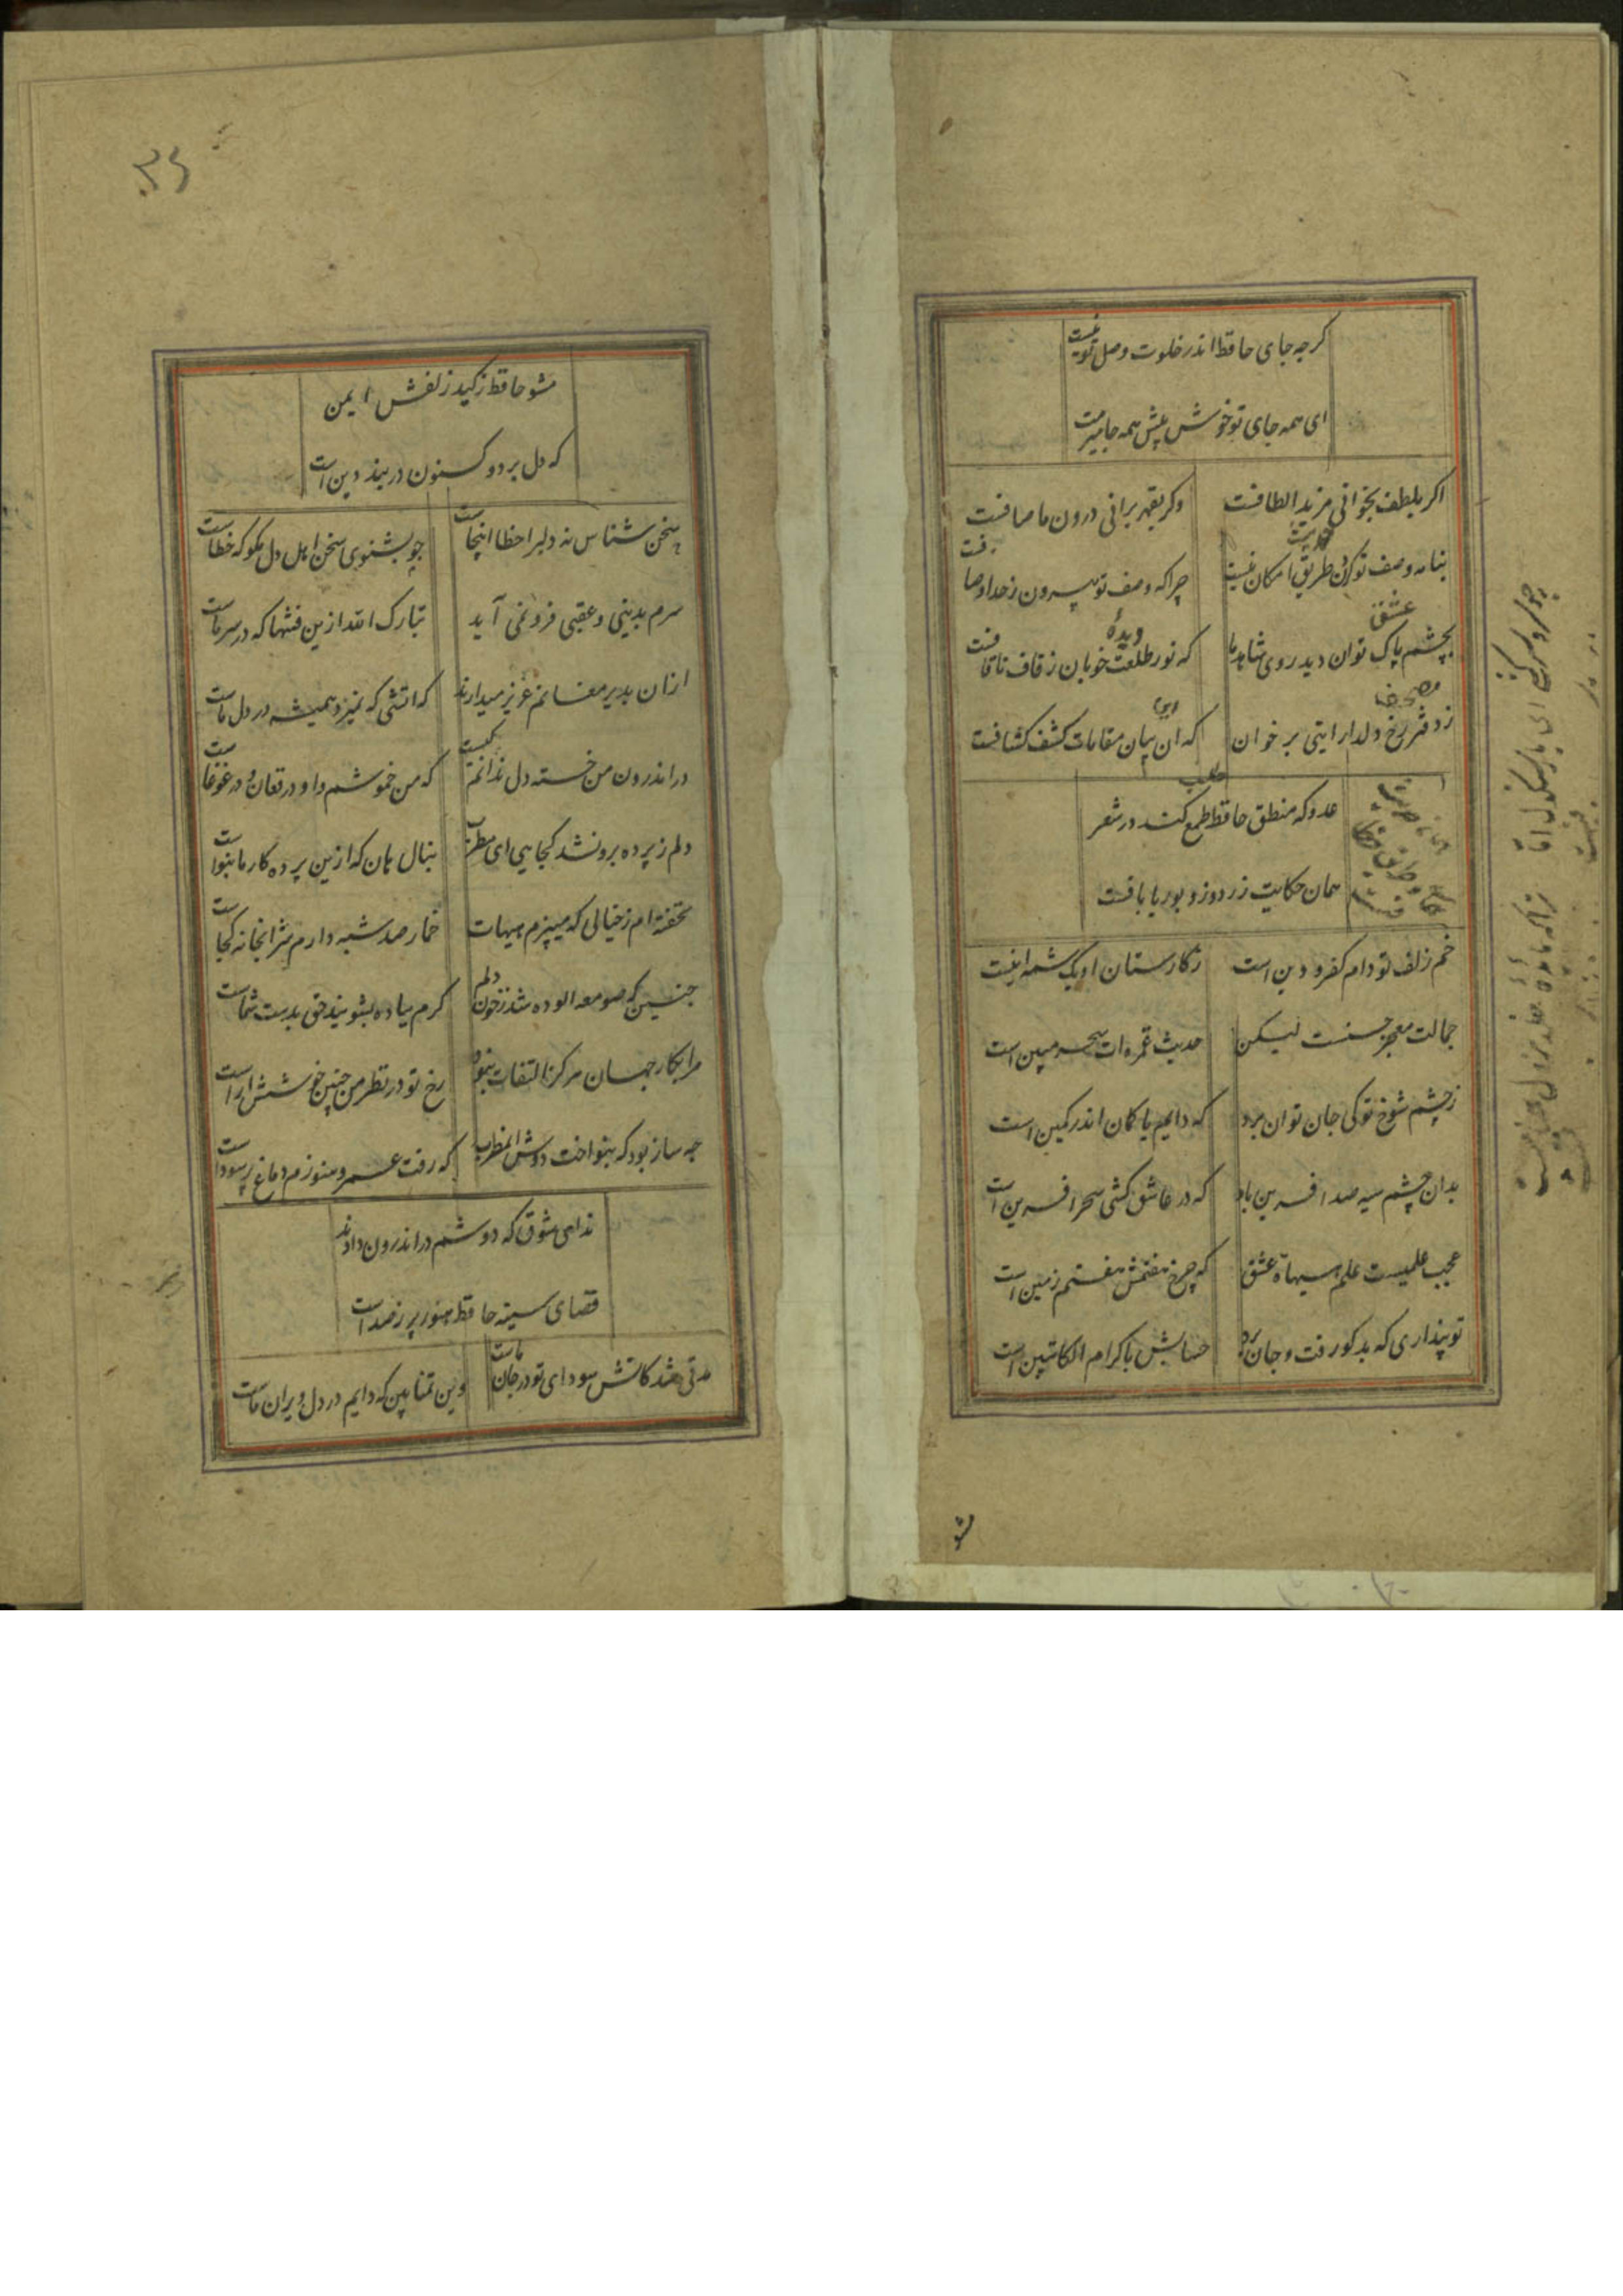 کرچه جای حافظ اندر خلوت وصل تو نیست
ای همه جای تو خوش پیش همه جا میرمت
اکر بلطف بخوانی مزید الطافست
وکر بقهر برانی درون ما صافست
بنامه وصف تو کردن طریق امکان نیست
چرا که وصف تو بیرون ز حد اوصافست
بچشم پاک توان دید روی شاهد ما
که نور طلعت خوبان ز قاف تا قافست
ز دفتر رخ دلدار ایتی بر خوان
که ان بیان مقامات کشف کشافست
عدو که منطق حافظ طمع کند در شعر
همان حکایت زردوز و بوریا بافست
خم زلف تو دام کفر و دین است
ز کارستان او یک شمه اینست
جمالت معجز حسنست لیکن
حدیث غمزه ات سحر مبین است
ز چشم شوخ تو کی جان توان برد
که دایم با کمان اندر کمین است
بدان چشم سیه صد افرین باد
که در عاشق کشی سحر افرین است
عجب علمیست علم هیاة عشق
که چرخ هفتمش هفتم زمین است
تو پنداری که بد کو رفت و جان برد
حسابش با کرام الکاتبین است
مشو
۳۵
مشو حافظ ز کید زلفش ایمن
که دل برد و کنون در بند دین است
چو بشنوی سخن اهل دل مکو که خطاست
سخن شناس نه دلبرا خطا اینجاست
سرم بدینی و عقبی فرو نمی آید
تبارک الله ازین فتنها که در سر ماست
ازان بدیر مغانم عزیز میدارند
که اتشی که نمیرد همیشه در دل ماست
در اندرون من خسته دل ندانم کیست
که من خموشم و او در فغان و در غوغاست
دلم ز پرده برون شد کجایی ای مطرب
بنال هان که ازین پرده کار ما بنواست
نخفته ام ز خیالی که میپزم هیهات
خمار صد شبه دارم شرابخانه کجاست
چنین که صومعه الوده شد ز خون دلم
کرم بباده بشویید حق بدست شماست
مرا بکار جهان هرکز التفات نبود
رخ تو در نظر من چنین خوشش اراست
چه ساز بود که بنواخت دوش ان مطرب
که رفت عمر و هنوزم دماغ پر سوداست
ندای شوق که دوشم در اندرون دادند
فضای سینه حافظ هنوز پر ز صداست
مدتی شد کاتش سودای تو در جان ماست
وین تمنا بین که دایم در دل ویران ماست